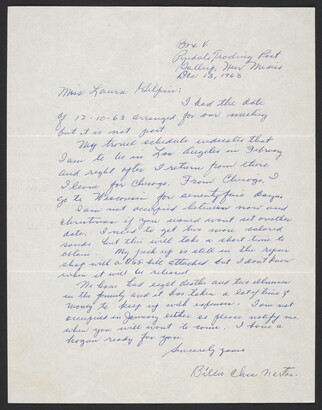 Box V
Trading Post
Gallup, New Mexico
Dec 13, 1963
Miss Laura Gilpin:
I had the date
of 12-10-63 arranged for our meeting
but it is not past.
My travel schedule indicates that
I am to be in Los Angeles in February
and right after I return from there
I leave for Chicago. From Chicago, I
go to Wisconsin for seventy five days.
I am not occupied between now and
Christmas if you would want set another
date. I need to get two more colored
sands but this will take a short time to
obtain. My pick up is still in the repair
shop with a bill attached but I don't know
when it will be released.
We have had eight deaths and two illnesses
in the family and it has taken a lot of time &
money to keep up with expenses. I am not
occupied in January either so please notify me
when you will want to come. I have a
hogan ready for you.
Sincerely yours
Billie Chee